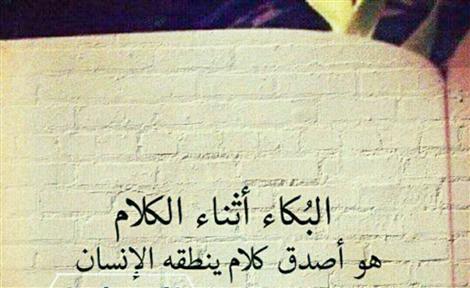 البُكاء أثناء الكلام
هو أصدق كلام ينطقه الإنسان